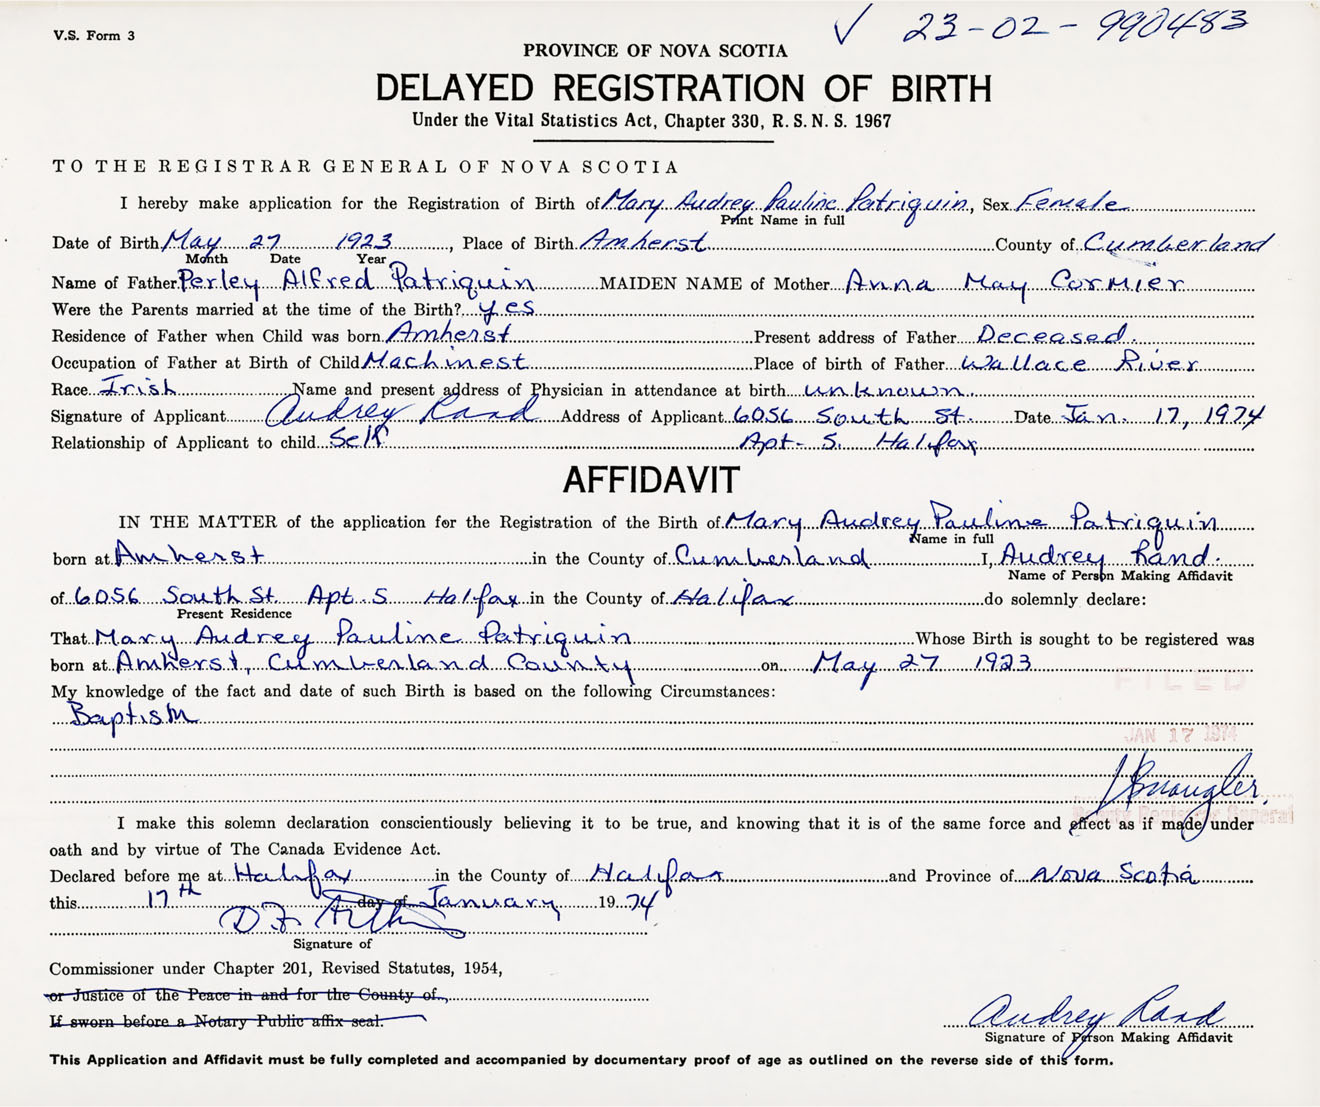 V.S. Form 3
✓ 23-02-990483
PROVINCE OF NOVA SCOTIA
DELAYED REGISTRATION OF BIRTH
Under the Vital Statistics Act, Chapter 330, R. S. N. S. 1967
TO THE REGISTRAR GENERAL OF NOVA SCOTIA
I hereby make application for the Registration of Birth of Mary Audrey Pauline Patriquin, Sex Female
Print Name in full
Date of Birth May 27 1923, Place of Birth Amherst County of Cumberland
Month Date Year
Name of Father Perley Alfred Patriquin MAIDEN NAME of Mother Anna May Cormier
Were the Parents married at the time of the Birth? yes
Residence of Father when Child was born Amherst Present address of Father Deceased.
Occupation of Father at Birth of Child Machinest Place of birth of Father Wallace River
Race Irish Name and present address of Physician in attendance at birth unknown.
Signature of Applicant Audrey Rand Address of Applicant 6056 South St. Date Jan. 17, 1974
Relationship of Applicant to child Self Apt- S. Halifax
AFFIDAVIT
IN THE MATTER of the application for the Registration of the Birth of Mary Audrey Pauline Patriquin
Name in full
born at Amherst in the County of Cumberland I, Audrey Rand.
Name of Person Making Affidavit
of 6056 South St. Apt. S Halifax in the County of Halifax do solemnly declare:
Present Residence
That Mary Audrey Pauline Patriquin Whose Birth is sought to be registered was
born at Amherst, Cumberland County on May 27 1923
My knowledge of the fact and date of such Birth is based on the following Circumstances:
FILED
Baptism
JAN 17 1974
Deputy Registrar General
I make this solemn declaration conscientiously believing it to be true, and knowing that it is of the same force and effect as if made under
oath and by virtue of The Canada Evidence Act.
Declared before me at Halifax in the County of Halifax and Province of Nova Scotia
this 17th day of January 1974
Signature of
Commissioner under Chapter 201, Revised Statutes, 1954,
or Justice of the Peace in and for the County of
If sworn before a Notary Public affix seal.
Audrey Rand
Signature of Person Making Affidavit
This Application and Affidavit must be fully completed and accompanied by documentary proof of age as outlined on the reverse side of this form.